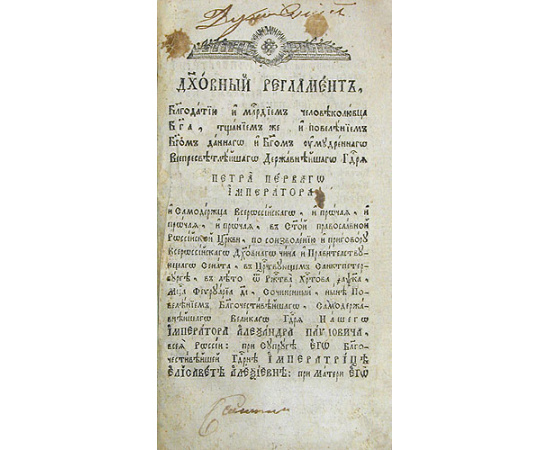 ДХ҃О́ВНЫЙ РЕГЛА́МЕНТЪ,
Бл҃года́тїю и҆ мл҃рдїемъ человѣколю́бца
Бг҃а, тща́нїемъ же и҆ повелѣ́нїемъ
Бг҃омъ да́ннагѡ и҆ Бг҃омъ ᲂумꙋдре́ннагѡ
Всепресвѣтлѣ́йшагѡ Держа́внѣйшагѡ Гдⷭ҇рѧ
ПЕТРА̀ ПЕ́РВАГѠ
І҆МПЕРА́ТОРА
и҆ Самоде́ржца Всерѡссі́йскагѡ, и҆ прѡ́чаѧ, и҆
прѡ́чаѧ, и҆ прѡ́чаѧ, въ Ст҃о́й правосла́вной
Рѡссі́йской Цр҃кви, по соизволе́нїю и҆ пригово́рꙋ
Всерѡссі́йскагѡ Дх҃о́внагѡ чи́на и҆ Прави́телствꙋ-
ющагѡ Сена́та, въ Цр҃ствꙋющемъ Санктпетер-
бꙋ́ргѣ, въ лѣ́то ѿ Ржⷭ҇тва̀ Хрⷭ҇то́ва ҂аѱка,
Мцⷭ҇а Феврꙋа́рїа Сочине́нный, ны́нѣ По-
велѣ́нїемъ Бл҃гочести́вѣйшагѡ, Самодержа́-
внѣйшагѡ Вели́кагѡ Гдⷭ҇рѧ На́шегѡ
І҆МПЕРА́ТОРА А҆ЛЕѮА́НДРА ПА́ѴЛОВИЧА,
всеѧ̀ Рѡссі́и: при Сꙋпрꙋ́гѣ Е҆гѡ̀ Бл҃го-
чести́вѣйшей Гдⷭ҇рнѣ І҆МПЕРАТРИ́ЦѢ
Е҆ЛІСАВЕ́ТѢ А҆ЛЕѮІ́ЕВНѢ: при Ма́тери Е҆гѡ̀